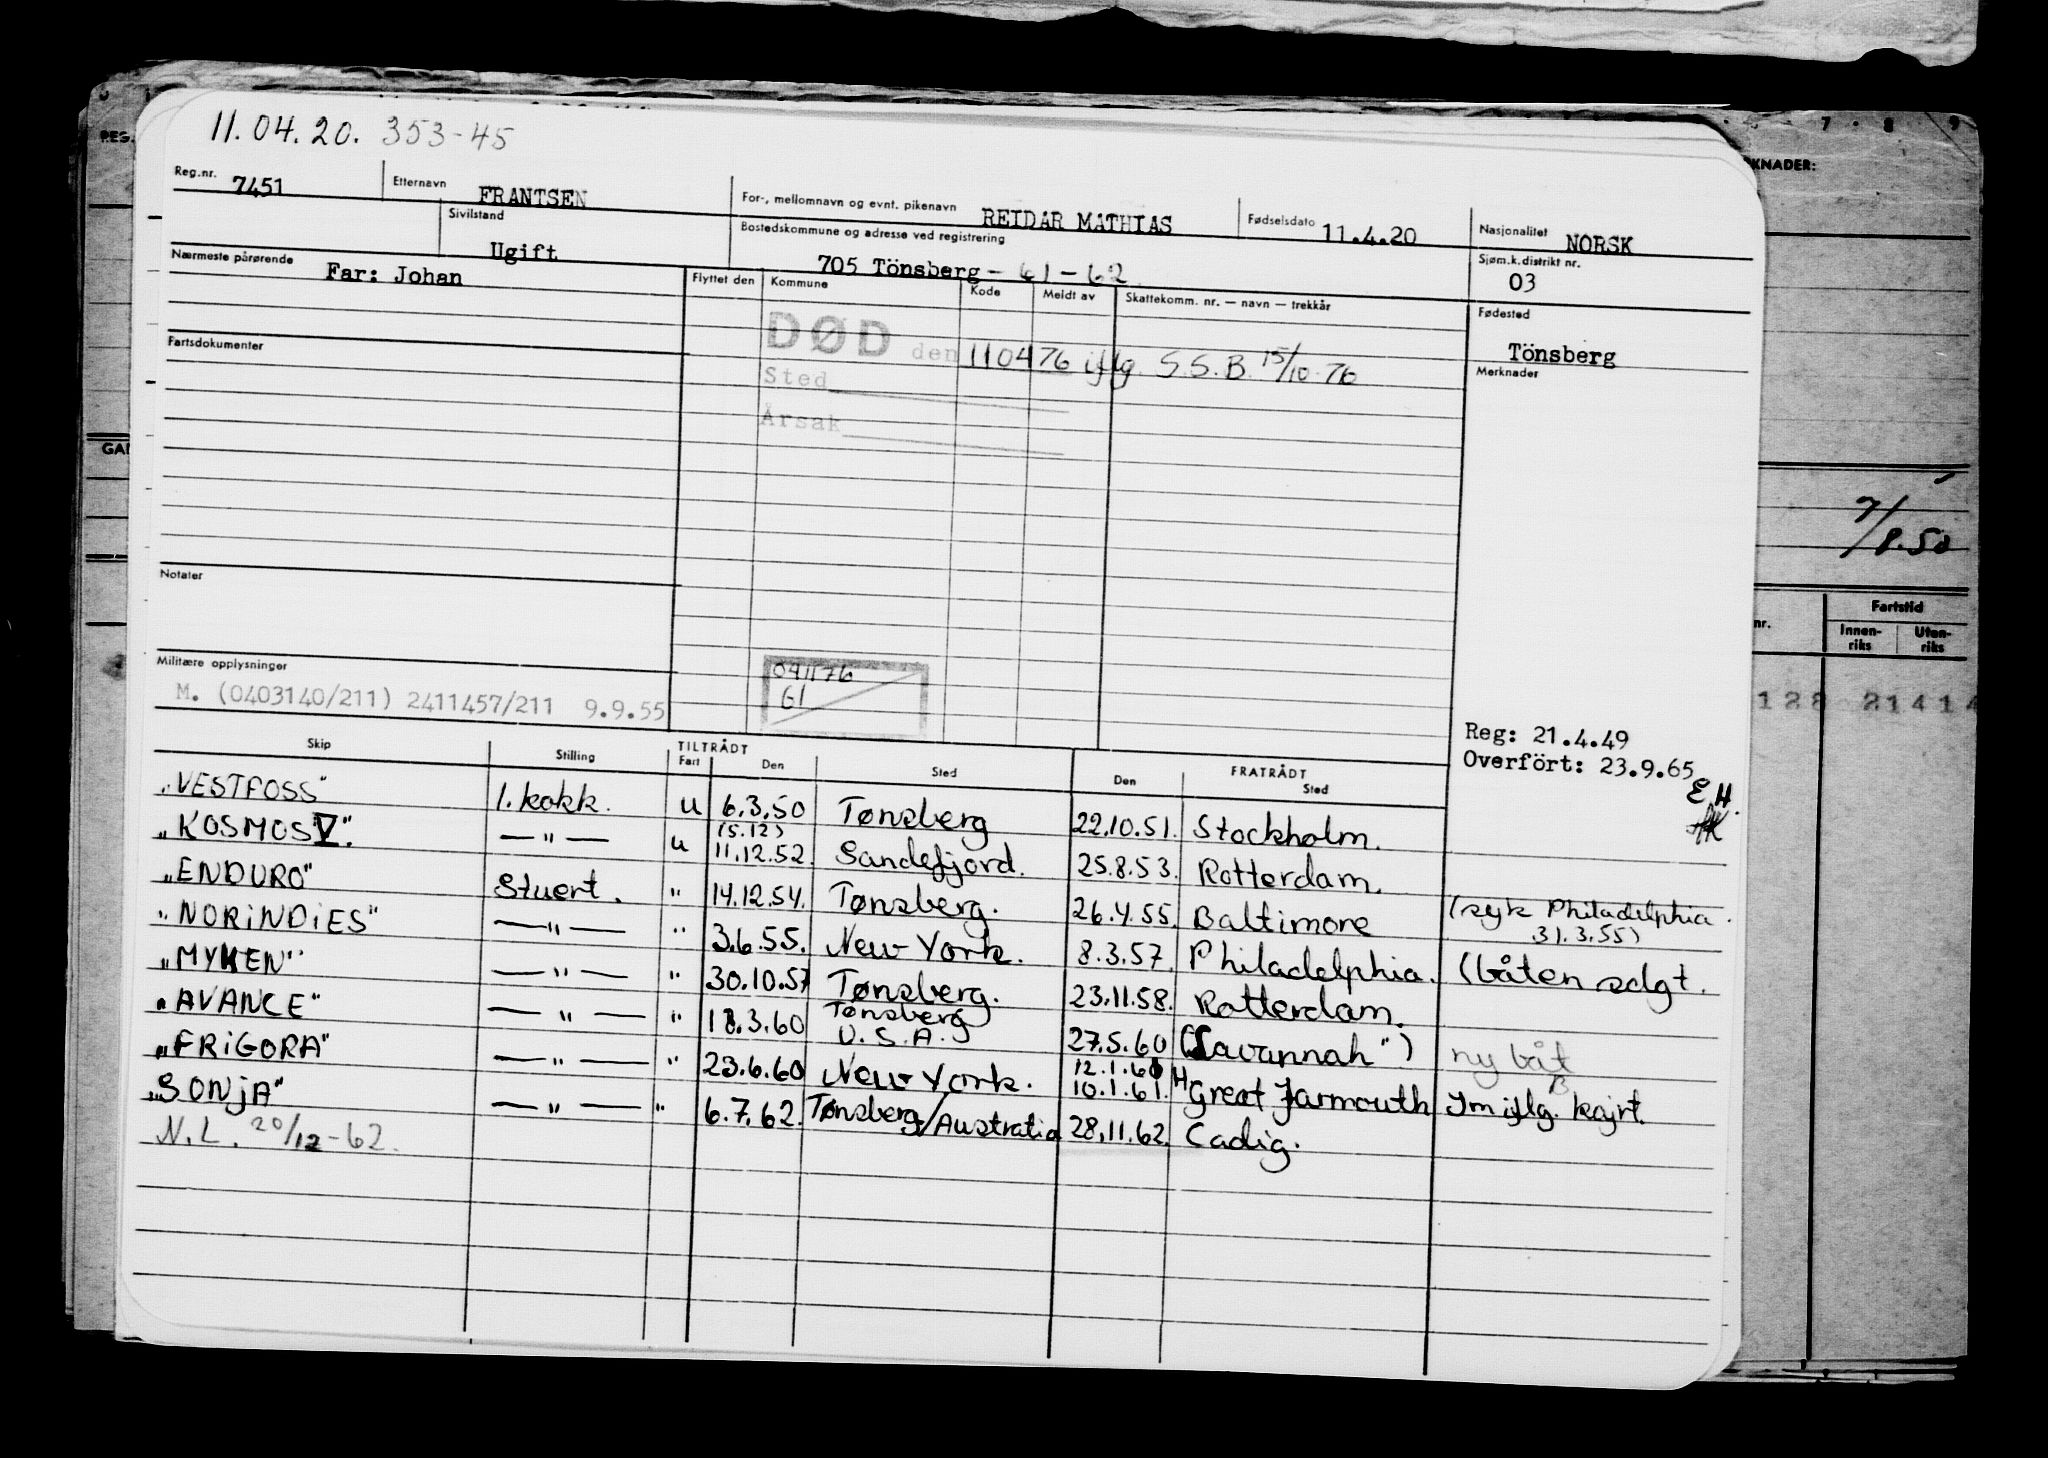 11.04.20. 353-45
Reg.nr. 7451 Etternavn FRANTSEN For-, mellomnavn og evnt. pikenavn REIDAR MATHIAS Fødselsdato 11.4.20 Nasjonalitet NORSK
Sivilstand Ugift Bostedskommune og adresse ved registrering 705 Tönsberg - 61-62 Sjøm.k.distrikt nr. 03
Nærmeste pårørende Far: Johan Flyttet den Kommune Kode Meldt av Skattekomm. nr. — navn — trekkår Fødested
Tönsberg
DØD den 110476 iflg. S.S.B. 15/10-76
Sted
Årsak
Fartsdokumenter
Merknader
Notater
Militære opplysninger
M. (0403140/211) 2411457/211 9.9.55
091176
61
Reg: 21.4.49
Overfört: 23.9.65
E.H.
Skip Stilling TILTRÅDT FRATRÅDT
Fart Den Sted Den Sted
"VESTFOSS" 1. kokk. u 6.3.50 Tønsberg 22.10.51. Stockholm.
"KOSMOS V". —"— u (5.12) 11.12.52. Sandefjord. 25.8.53. Rotterdam.
"ENDURO" Stuert. " 14.12.54. Tønsberg. 26.4.55. Baltimore (syk Philadelphia. 31.3.55)
"NORiNDiES" —"— " 3.6.55. New York. 8.3.57. Philadelphia. (båten solgt.
"MYKEN" —"— " 30.10.57 Tønsberg. 23.11.58. Rotterdam.
"AVANCE" —"— " 18.3.60 Tønsberg U.S.A. 27.5.60 (Savannah") ny båt
"FRiGORA" —"— " 23.6.60 New York. 12.1.60 10.1.61. Great Jarmouth Jm iflg. kajrt.
"SONjA" —"— " 6.7.62. Tønsberg/Australia 28.11.62. Cadig.
N.L. 20/12-62.
REG.
GAN
KNADER:
7 8 9
7/8.50
nr. Fartstid
Innen-riks Uten-riks
128 21414